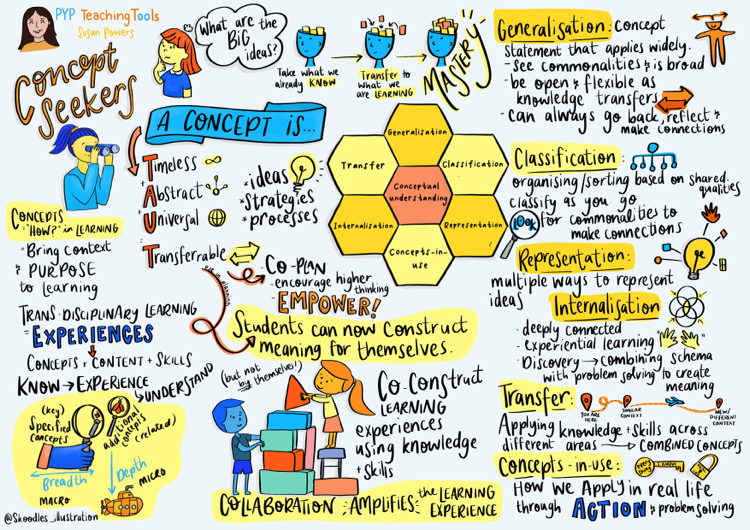 PYP TeachingTools
Susan Powers
Concept
Seekers
What are the
BIG
ideas?
Take what we
already KNOW
Transfer to
what we
are LEARNING
MASTERY
A CONCEPT IS...
Timeless
+ Abstract
+ Universal
Transferrable
* ideas
* strategies
* processes
CONCEPTS
"HOW?" in LEARNING
- Bring Context
+ PURPOSE
to Learning
TRANS-DISCIPLINARY LEARNING
= EXPERIENCES
CONCEPTS + CONTENT + SKILLS
KNOW → EXPERIENCE
↳ UNDERSTAND
(key)
Specified
Concepts
additional
concepts
(related)
Breadth
MACRO
Depth
MICRO
@Skoodles_illustration
- CO-PLAN
- encourage higher
thinking
- EMPOWER!
Students can now construct
meaning for themselves.
(but not
by themselves!)
Co-Construct
LEARNING
experiences
using knowledge
+ skills
COLLABORATION AMPLIFIES the LEARNING
EXPERIENCE
Generalisation
Transfer
Classification
Conceptual
understanding
Internalisation
Representation
Concepts-in-
use
Generalisation: concept
statement that applies widely.
- See commonalities & is broad
- be open & flexible as
knowledge transfers
- Can always go back, reflect &
make connections
Classification:
organising/sorting based on shared
qualities
classify as you go
LOOK for commonalities to
make connections
Representation:
multiple ways to represent
ideas
Internalisation
- deeply connected
- experiential learning
- Discovery → combining schema
with problem solving to create
meaning
Transfer:
YOU ARE
HERE
SIMILAR
CONTEXT
NEW/
DIFFERENT
CONTEXT
Applying knowledge + skills across
different areas → COMBINED CONCEPTS
Concepts-in-use:
I KNOW
How we Apply in real life
through ACTION & problem solving